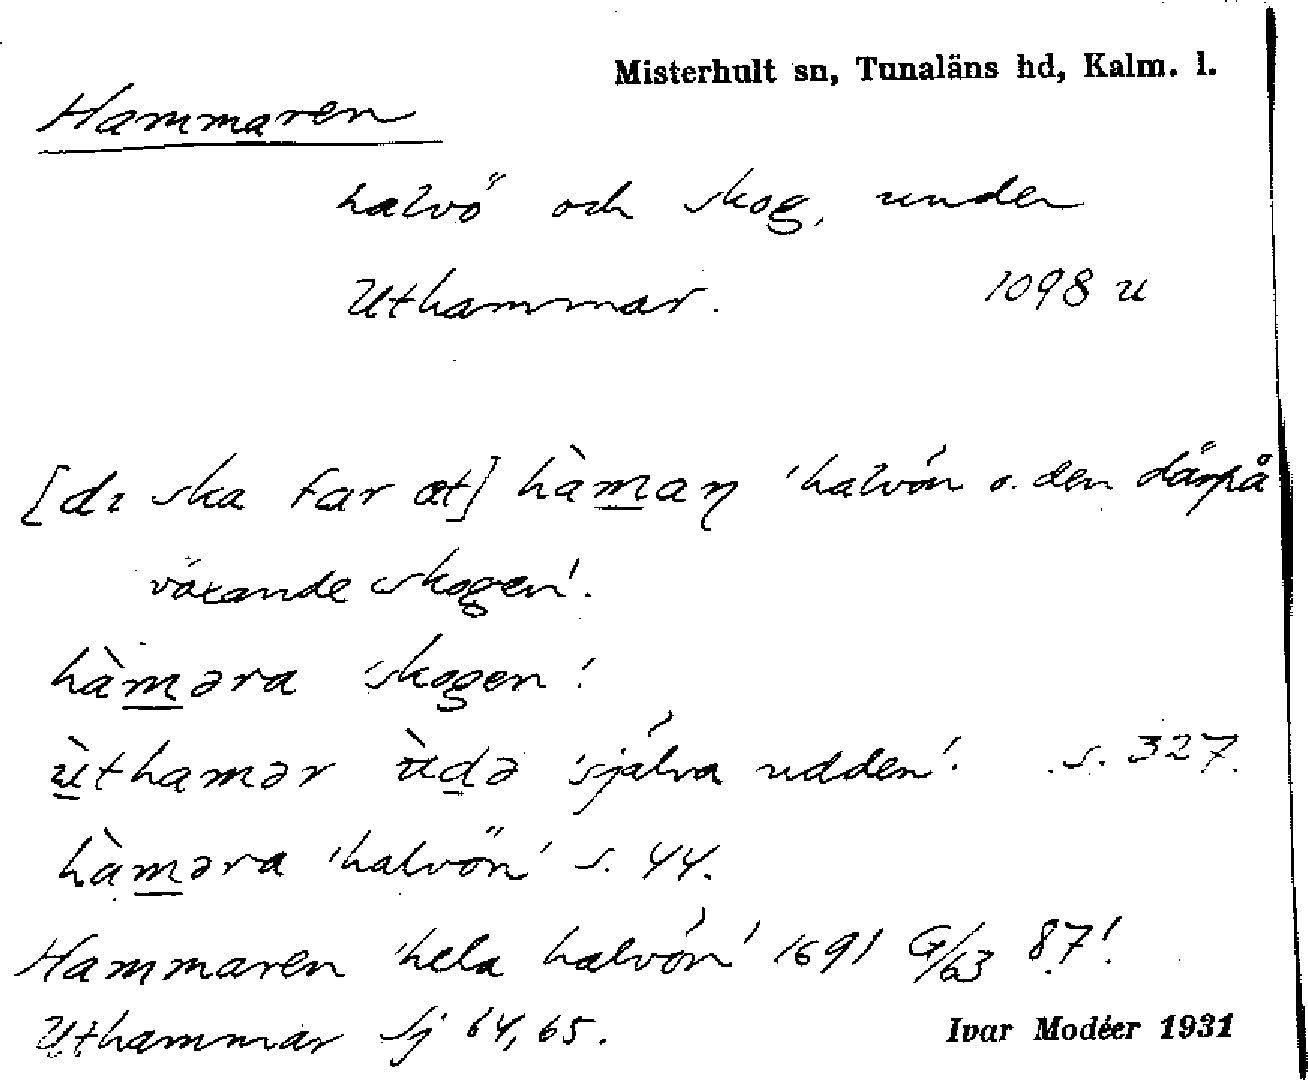 Misterhult sn, Tunaläns hd, Kalm. l.
Hammaren
halvö och skog, under
Uthammar. 1098 u
[dı ska far æt] hàmaƞ 'halvön o. den därpå
växande skogen'.
hàməra 'skogen'.
ùthamər ùdə 'själva udden'. s. 327.
hàməra 'halvön' s. 44.
Hammaren 'hela halvön' 1691 G/63 87!
Uthammar Sj 64, 65.
Ivar Modéer 1931